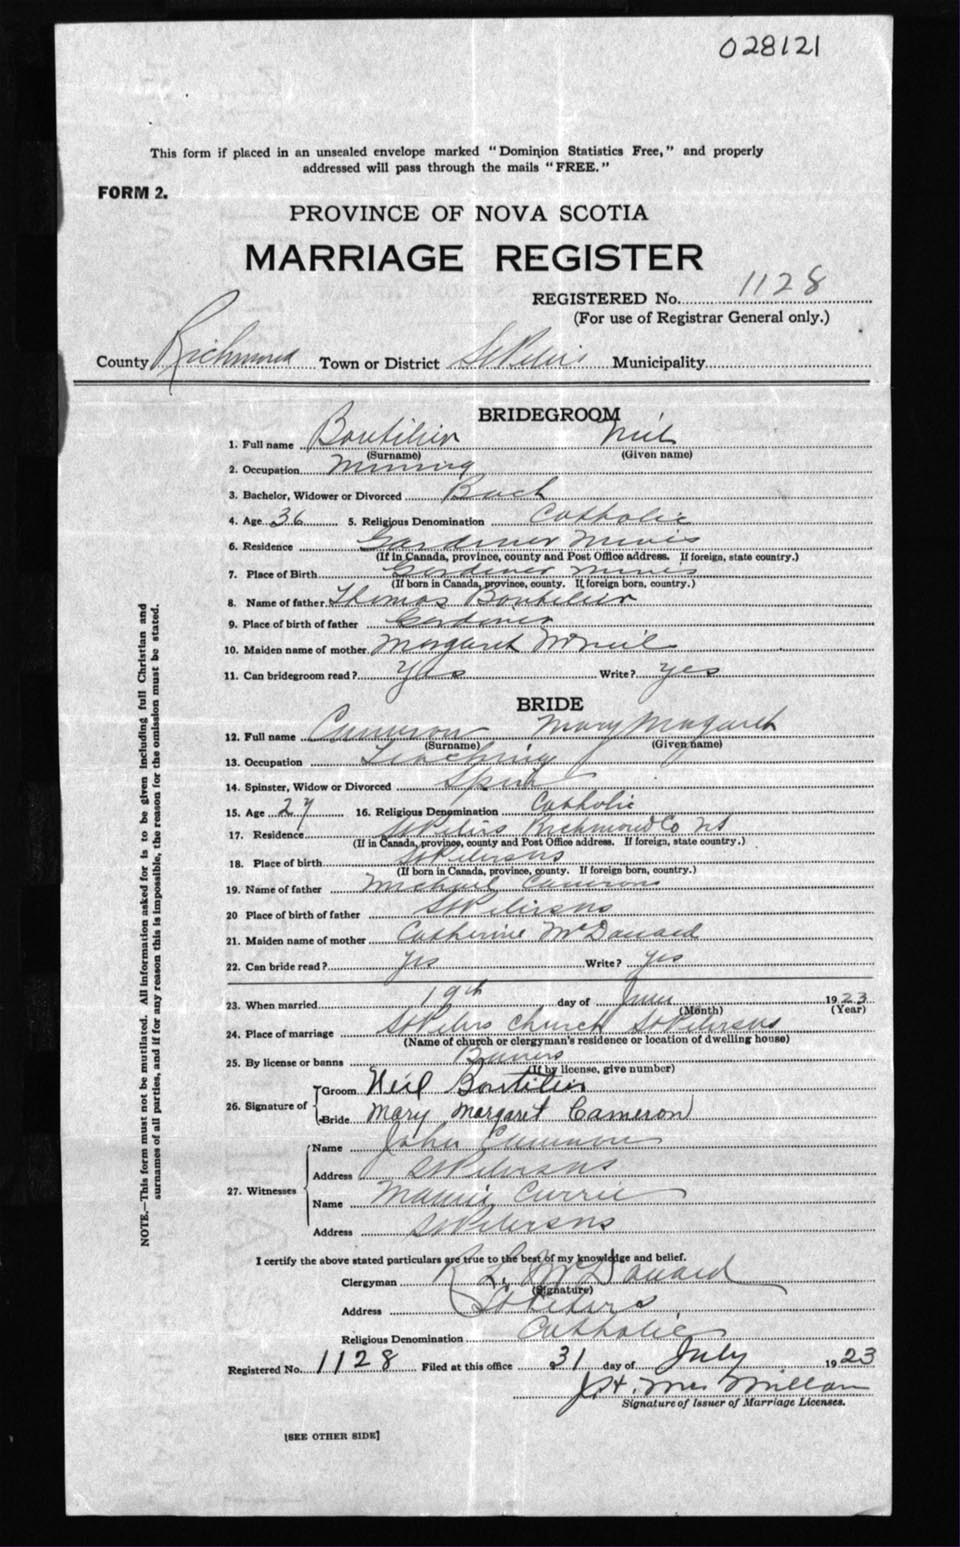 028121
This form if placed in an unsealed envelope marked "Dominion Statistics Free," and properly
addressed will pass through the mails "FREE."
FORM 2.
PROVINCE OF NOVA SCOTIA
MARRIAGE REGISTER
REGISTERED No. 1128
(For use of Registrar General only.)
County Richmond Town or District St Peters Municipality
BRIDEGROOM
1. Full name Boutilier Neil
(Surname) (Given name)
2. Occupation Mining
3. Bachelor, Widower or Divorced Bach
4. Age 36 5. Religious Denomination Catholic
6. Residence Gardiner Mines
(If in Canada, province, county and Post Office address. If foreign, state country.)
7. Place of Birth Gardiner Mines
(If born in Canada, province, county. If foreign born, country.)
8. Name of father Thomas Boutilier
9. Place of birth of father Gardiner
10. Maiden name of mother Margaret McNeil
11. Can bridegroom read? Yes Write? yes
BRIDE
12. Full name Cameron Mary Magaret
(Surname) (Given name)
13. Occupation Teaching
14. Spinster, Widow or Divorced Spin
15. Age 27 16. Religious Denomination Catholic
17. Residence St Peters Richmond Co NS
(If in Canada, province, county and Post Office address. If foreign, state country.)
18. Place of birth St Peters NS
(If born in Canada, province, county. If foreign born, country.)
19. Name of father Michael Cameron
20 Place of birth of father St Peters NS
21. Maiden name of mother Catherine McDonald
22. Can bride read? yes Write? yes
23. When married 19th day of June 1923
(Month) (Year)
24. Place of marriage St Peters Church St Peters NS
(Name of church or clergyman's residence or location of dwelling house)
25. By license or banns Banns
(If by license, give number)
26. Signature of Groom Neil Boutilier
Bride Mary Margaret Cameron
27. Witnesses Name John Cameron
Address St Peters NS
Name Mamie Currie
Address St Peters NS
I certify the above stated particulars are true to the best of my knowledge and belief.
Clergyman R L McDonald
(Signature)
Address St Peters
Religious Denomination Catholic
Registered No. 1128 Filed at this office 31 day of July 1923
J.H. McMillan
Signature of Issuer of Marriage Licenses.
[SEE OTHER SIDE]
NOTE.—This form must not be mutilated. All information asked for is to be given including full Christian and
surnames of all parties, and if for any reason this is impossible, the reason for the omission must be stated.